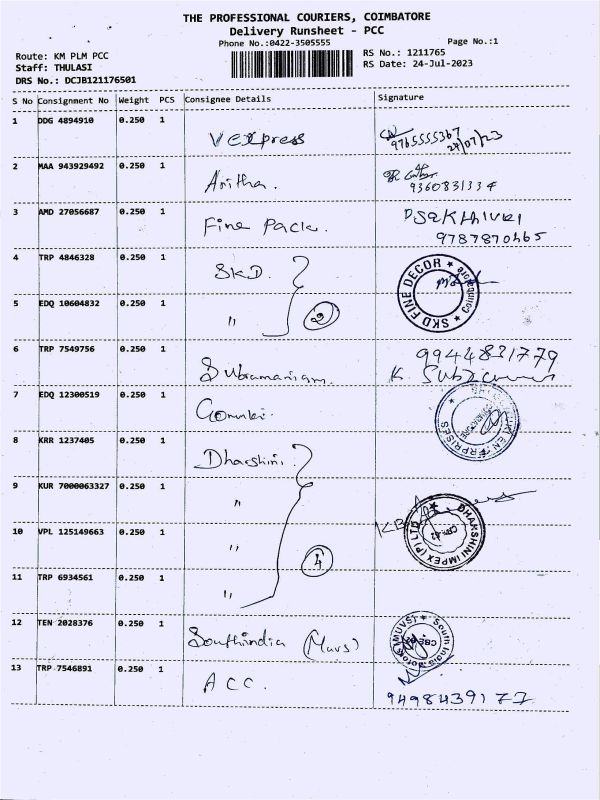 THE PROFESSIONAL COURIERS, COIMBATORE
Delivery Runsheet - PCC
Phone No.:0422-3505555
Page No.:1
Route: KM PLM PCC
RS No.: 1211765
Staff: THULASI
RS Date: 24-Jul-2023
DRS No.: DCJB121176501
S No Consignment No Weight PCS Consignee Details Signature
1 DDG 4894910 0.250 1 Vexpress
9765555367
24/07/23
2 MAA 943929492 0.250 1 Anitha.
9360831334
3 AMD 27056687 0.250 1 Fine Pack. P Sakthivel
9787870465
4 TRP 4846328 0.250 1 SKD. SKD FINE DECOR ★ Coimbatore ★
5 EDQ 10604832 0.250 1 " 2
6 TRP 7549756 0.250 1 Subramaniam. 9944831779
K
7 EDQ 12300519 0.250 1 ENTERPRISES
8 KRR 1237405 0.250 1 Dharshini
9 KUR 7000063327 0.250 1 " KB DHAKSHINI IMPEX (P) LTD
10 VPL 125149663 0.250 1 " 4
11 TRP 6934561 0.250 1 "
12 TEN 2028376 0.250 1 Southindia (Muvs) South India
13 TRP 7546891 0.250 1 ACC. 9498439177